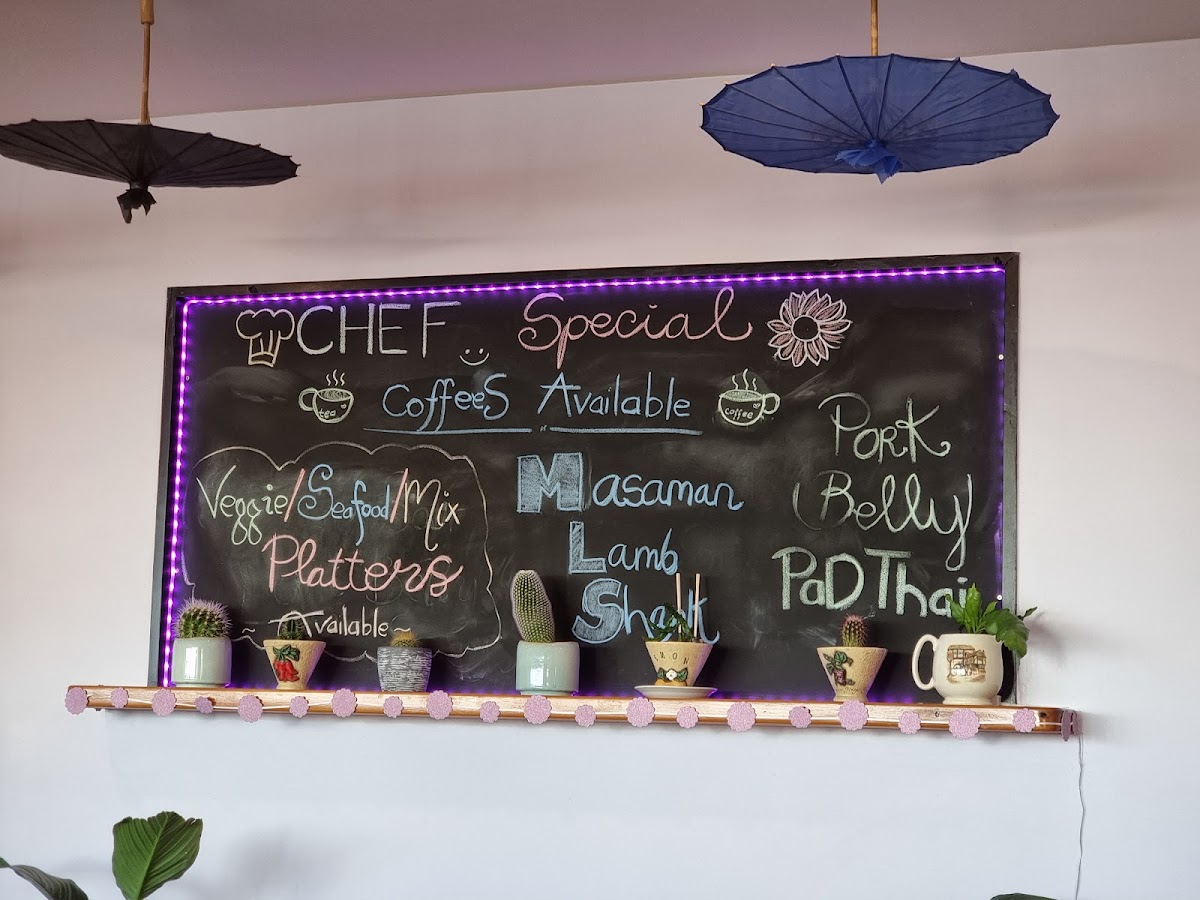 CHEF Special
tea
Coffees Available
coffee
Veggie/Seafood/Mix
Platters
~ Available ~
Masaman
Lamb
Shank
Pork
Belly
PaD Thai